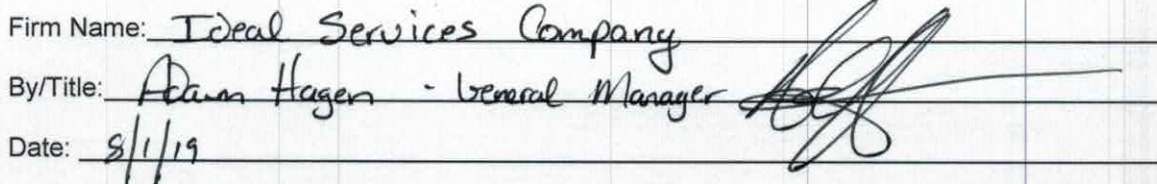 Firm Name: Ideal Services Company
By/Title: Adam Hagen - General Manager
Date: 8/1/19